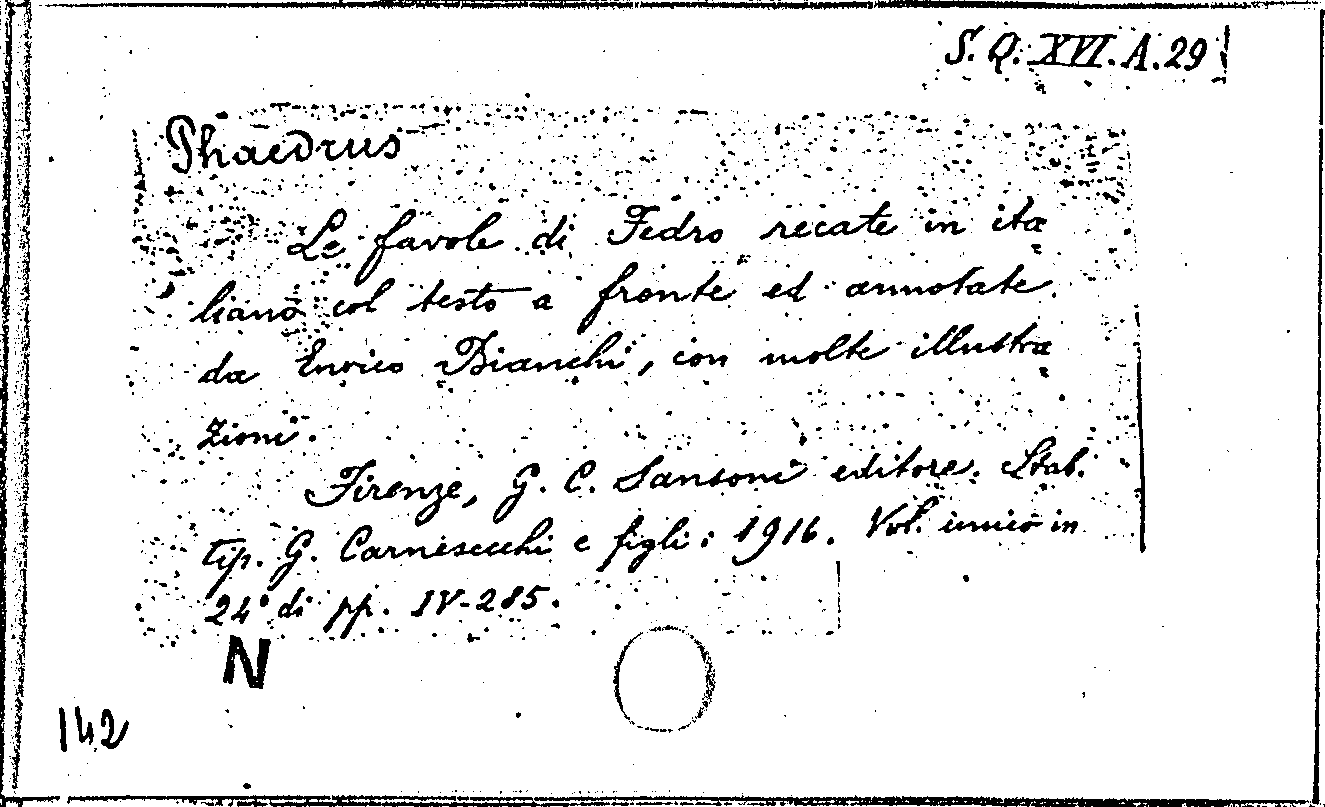 S. Q. XVI. A. 29
Phaedrus
Le favole di Fedro recate in ita=
liano col testo a fronte ed annotate
da Enrico Bianchi, con molte illustra=
zioni.
Firenze, G. C. Sansoni editore. Stab.
tip. G. Carnesecchi e figli: 1916. Vol. unico in
24° di pp. IV-285.
N
142